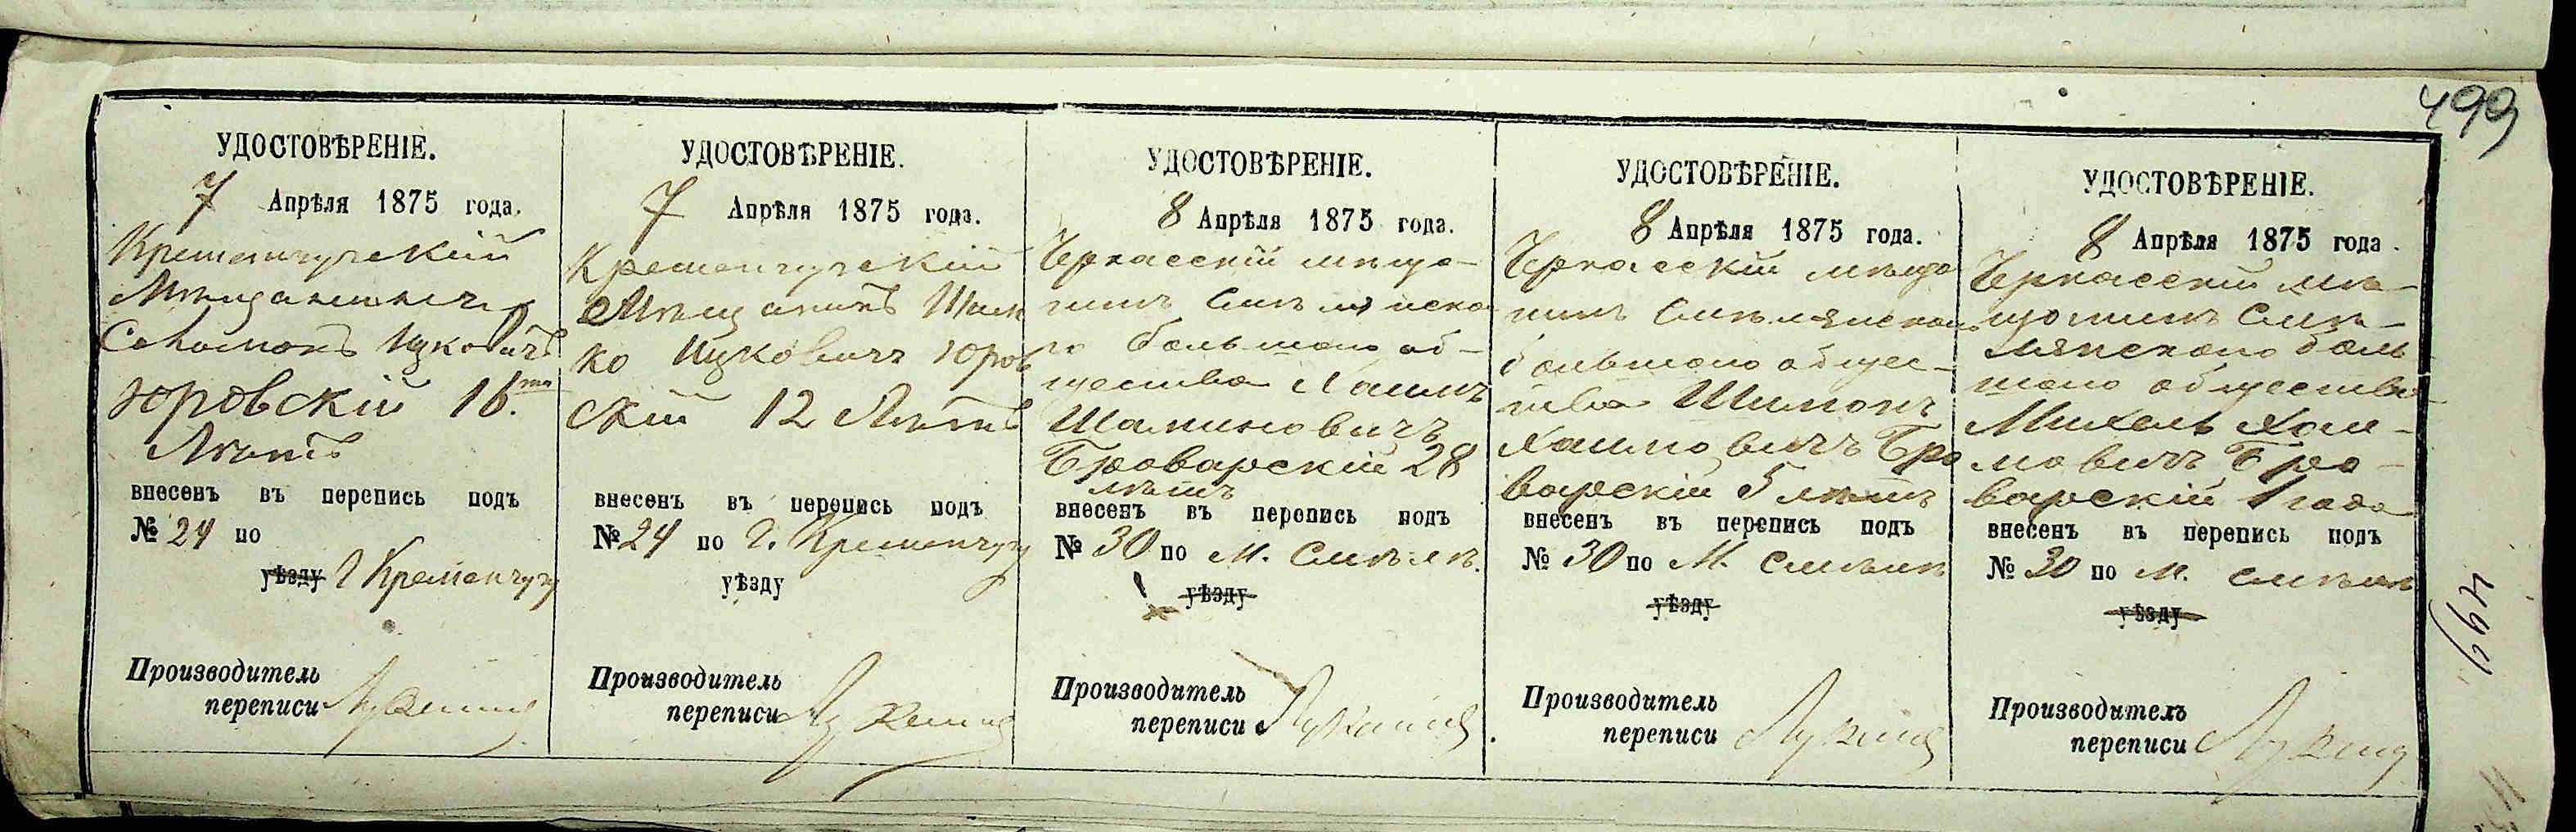 499
УДОСТОВѢРЕНІЕ.
7 Апрѣля 1875 года.
Кременчугскій
Мѣщанинъ
Соломонъ Ицковичъ
Юровскій 16.ти
Лѣтъ
внесенъ въ перепись подъ
№ 24 по
уѣзду г Кременчугу
Производитель
переписи
УДОСТОВѢРЕНІЕ.
7 Апрѣля 1875 года.
Кременчугскій
Мѣщанинъ
ко Ицковичъ Юров
скій 12 Лѣтъ
внесенъ въ перепись подъ
№ 24 по г. Кременчугу
уѣзду
Производитель
переписи
УДОСТОВѢРЕНІЕ.
8 Апрѣля 1875 года.
Черкасскій мѣща-
нинъ Смѣлянска
го большого об-
щества Хаимъ
Шлиомовичъ
Броварскій 28
лѣтъ
внесенъ въ перепись подъ
№ 30 по м. Смѣлѣ.
уѣзду
Производитель
переписи
УДОСТОВѢРЕНІЕ.
8 Апрѣля 1875 года.
Черкасскій мѣща
нинъ Смѣлянскаго
большого общес-
тва Шимонъ
Хаимовичъ Бро
варскій 5 лѣтъ
внесенъ въ перепись подъ
№ 30 по М. Смѣлѣ
уѣзду
Производитель
переписи
УДОСТОВѢРЕНІЕ.
8 Апрѣля 1875 года.
Черкасскій мѣ-
щанинъ Смѣ-
лянскаго боль
шого общества
Михель Хаи-
мовичъ Бро-
варскій 1 года
внесенъ въ перепись подъ
№ 30 по м. Смѣлѣ
уѣзду
Производитель
переписи
499